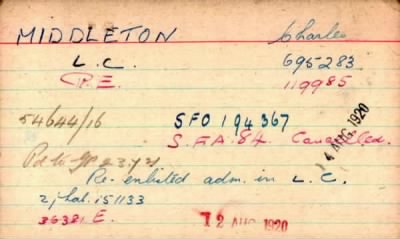 MIDDLETON Charles
L.C. 695283
R.E. 119985
54644/16 SFO 194367
S.F.A. 84. Cancelled.
14 AUG. 1920
Re-enlisted adm. in L.C.
151133
36381 E. 12 AUG 1920